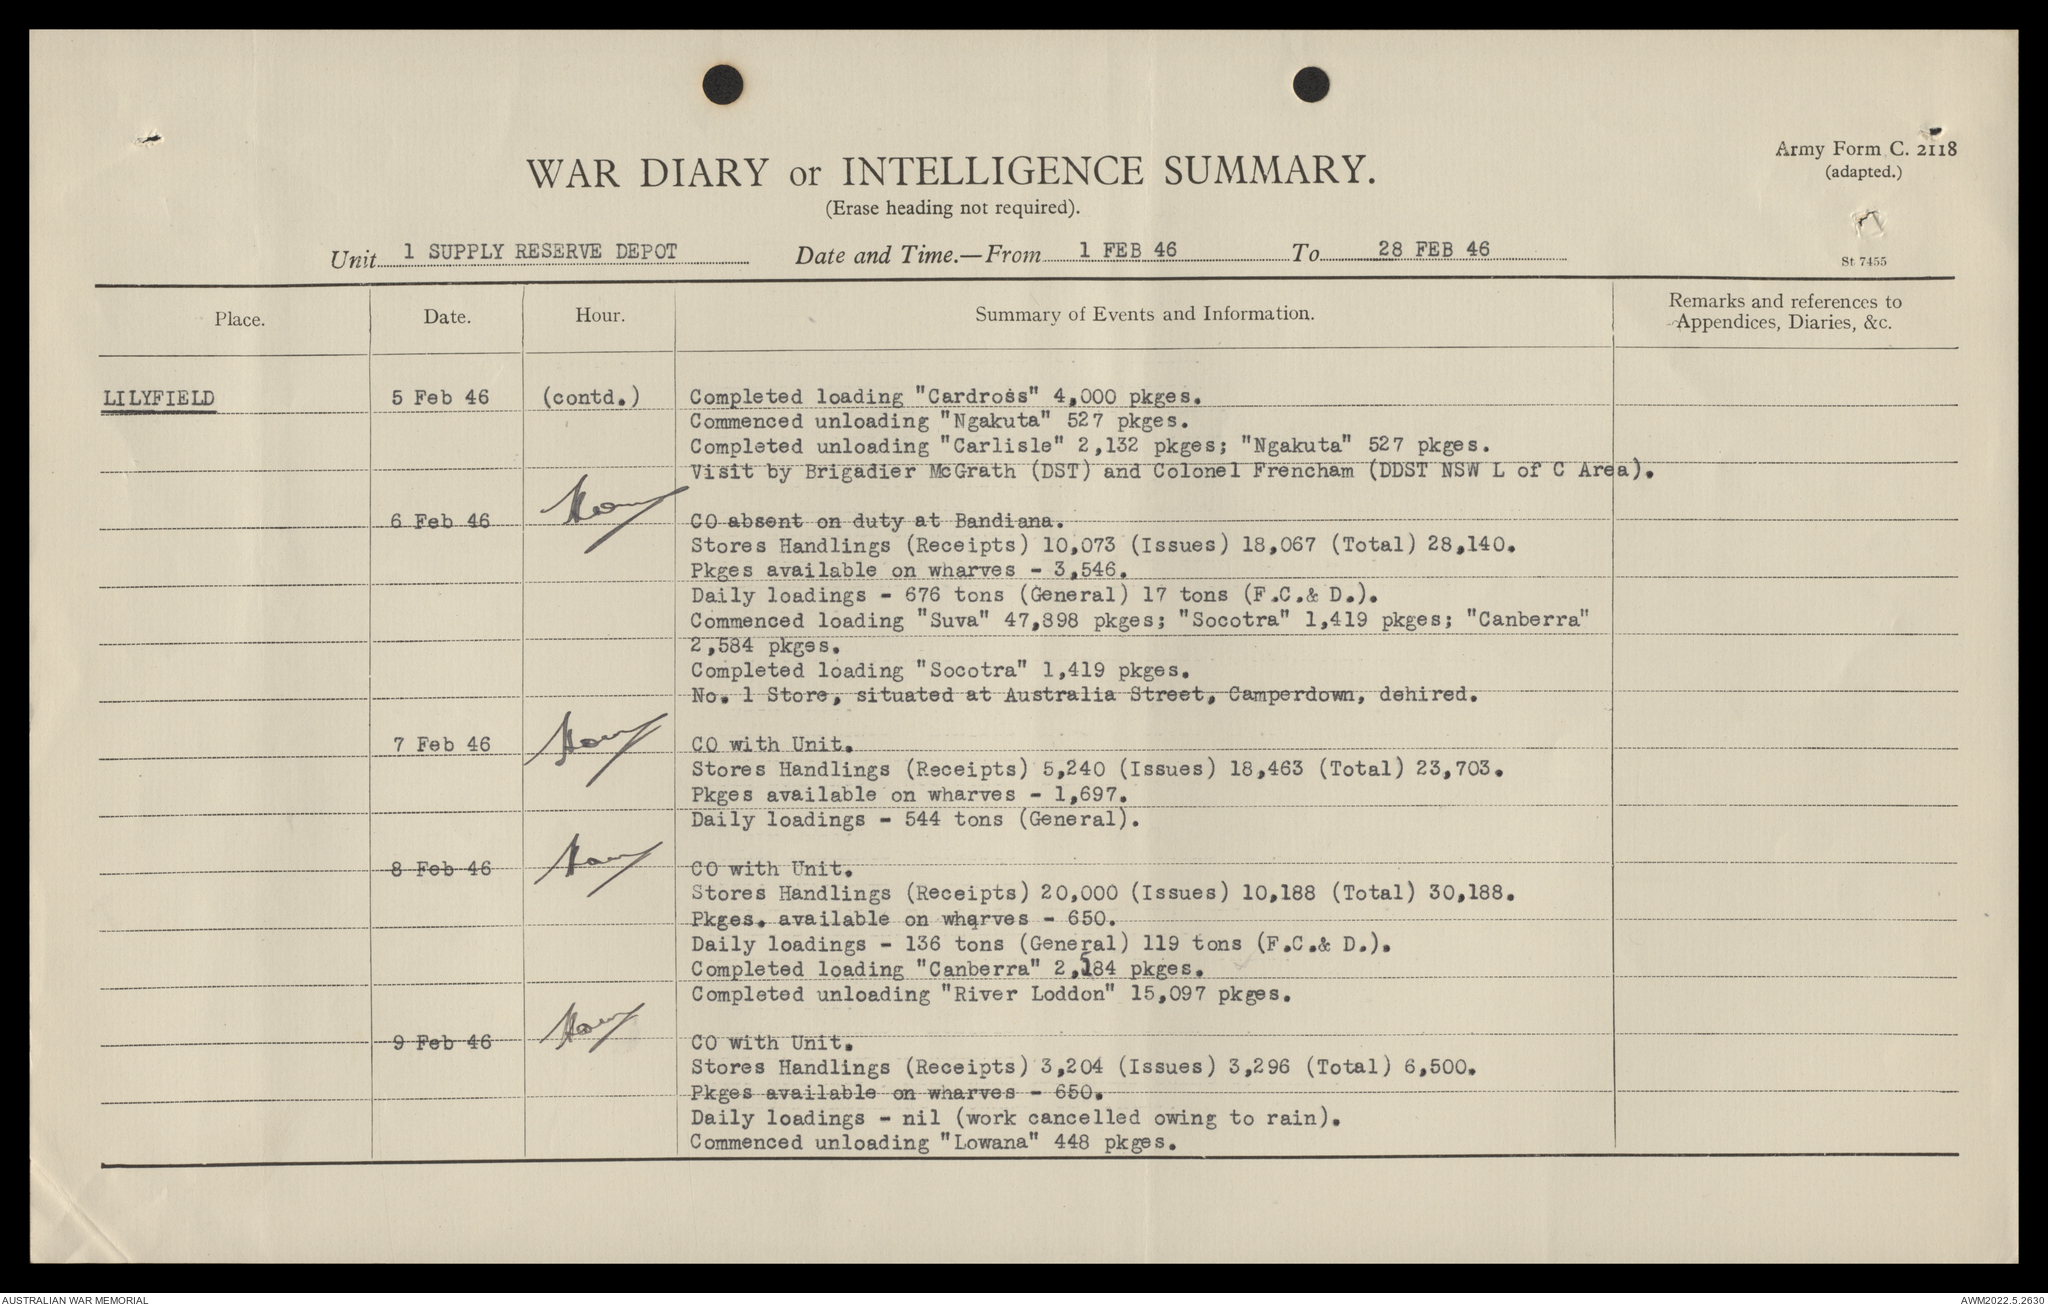 WAR DIARY or INTELLIGENCE SUMMARY.
(Erase heading not required).
Army Form C. 2118
(adapted.)
St 7455
Unit 1 SUPPLY RESERVE DEPOT Date and Time.—From 1 FEB 46 To 28 FEB 46
Place. Date. Hour. Summary of Events and Information. Remarks and references to
Appendices, Diaries, &c.
LILYFIELD 5 Feb 46 (contd.) Completed loading "Cardross" 4,000 pkges.
Commenced unloading "Ngakuta" 527 pkges.
Completed unloading "Carlisle" 2,132 pkges; "Ngakuta" 527 pkges.
Visit by Brigadier McGrath (DST) and Colonel Frencham (DDST NSW L of C Area).
6 Feb 46 CO absent on duty at Bandiana.
Stores Handlings (Receipts) 10,073 (Issues) 18,067 (Total) 28,140.
Pkges available on wharves - 3,546.
Daily loadings - 676 tons (General) 17 tons (F.C.& D.).
Commenced loading "Suva" 47,898 pkges; "Socotra" 1,419 pkges; "Canberra"
2,584 pkges.
Completed loading "Socotra" 1,419 pkges.
No. 1 Store, situated at Australia Street, Camperdown, dehired.
7 Feb 46 CO with Unit.
Stores Handlings (Receipts) 5,240 (Issues) 18,463 (Total) 23,703.
Pkges available on wharves - 1,697.
Daily loadings - 544 tons (General).
8 Feb 46 CO with Unit.
Stores Handlings (Receipts) 20,000 (Issues) 10,188 (Total) 30,188.
Pkges. available on wharves - 650.
Daily loadings - 136 tons (General) 119 tons (F.C.& D.).
Completed loading "Canberra" 2,584 pkges.
Completed unloading "River Loddon" 15,097 pkges.
9 Feb 46 CO with Unit.
Stores Handlings (Receipts) 3,204 (Issues) 3,296 (Total) 6,500.
Pkges available on wharves - 650.
Daily loadings - nil (work cancelled owing to rain).
Commenced unloading "Lowana" 448 pkges.
AUSTRALIAN WAR MEMORIAL
AWM2022.5.2630